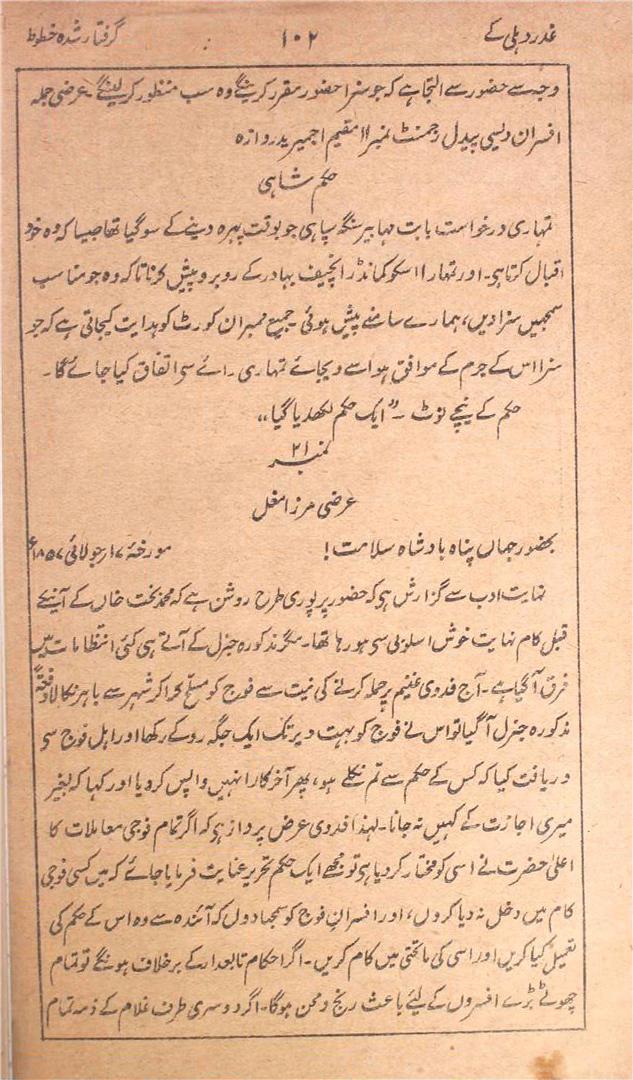 غدر دہلی کے ۱۰۲ گرفتار شدہ خطوط
وجہ سے حضور سے التجا ہے کہ جو سزا حضور مقرر کرینگے وہ سب منظور کر لینگے عرضی جملہ
افسران دیسی پیدل رجمنٹ نمبر ۱۱ مقیم اجمیر یدروازہ
حکم شاہی
تمہاری درخواست بابت مہابیر سنگھ سپاہی جو بوقت پہرہ دینے کے سو گیا تھا جیسا کہ وہ خود
اقبال کرتا ہی۔ اور تمہارا اسکو کمانڈر انچیف بہادر کے روبرو پیش کرنا تاکہ وہ جو مناسب
سمجہیں سزا دیں، ہمارے سامنے پیش ہوئی۔ جمیع ممبران کورٹ کو ہدایت کیجاتی ہے کہ جو
سزا اس کے جرم کے موافق ہو اسے دیجائے تمہاری رائے سی اتفاق کیا جائے گا۔
حکم کے نیچے نوٹ۔ ”ایک حکم لکھدیا گیا“
نمبر ۲۱
عرضی مرزا مغل
بحضور جہاں پناہ بادشاہ سلامت! مورخۂ ۱۷ جولائی ۱۸۵۷ء
نہایت ادب سے گزارش ہی کہ حضور پر پوری طرح روشن ہے کہ محمد بخت خاں کے آنیکے
قبل کام نہایت خوش اسلوبی سی ہو رہا تھا۔ مگر مذکورہ جنرل کے آتے ہی کئی انتظامات میں
فرق آ گیا ہے۔ آج فدوی غنیم پر حملہ کرنے کی نیت سے فوج کو مسلح کرا کر شہر سے باہر نکالا دفعتہً
مذکورہ جنرل آگیا تو اس نے فوج کو بہت دیر تک ایک جگہ روکے رکھا اور اہل فوج سی
دریافت کیا کہ کس کے حکم سے تم نکلے ہو، پھر آخر کار انہیں واپس کر دیا اور کہا کہ بغیر
میری اجازت کے کہیں نہ جانا۔ لہذا فدوی عرض پرداز ہی کہ اگر تمام فوجی معاملات کا
اعلیٰ حضرت نے اسی کو مختار کر دیا ہی تو مجھے ایک حکم تحریر عنایت فرمایا جائے کہ میں کسی فوجی
کام میں دخل نہ دیا کروں، اور افسرانِ فوج کو سمجہا دوں کہ آئندہ سے وہ اس کے حکم کی
تعمیل کیا کریں اور اسی کی ماتحتی میں کام کریں۔ اگر احکام تابعدار کے برخلاف ہونگے تو تمام
چھوٹے بڑے افسروں کے لیئے باعث رنج و محن ہوگا۔ اگر دوسری طرف غلام کے ذمہ تمام